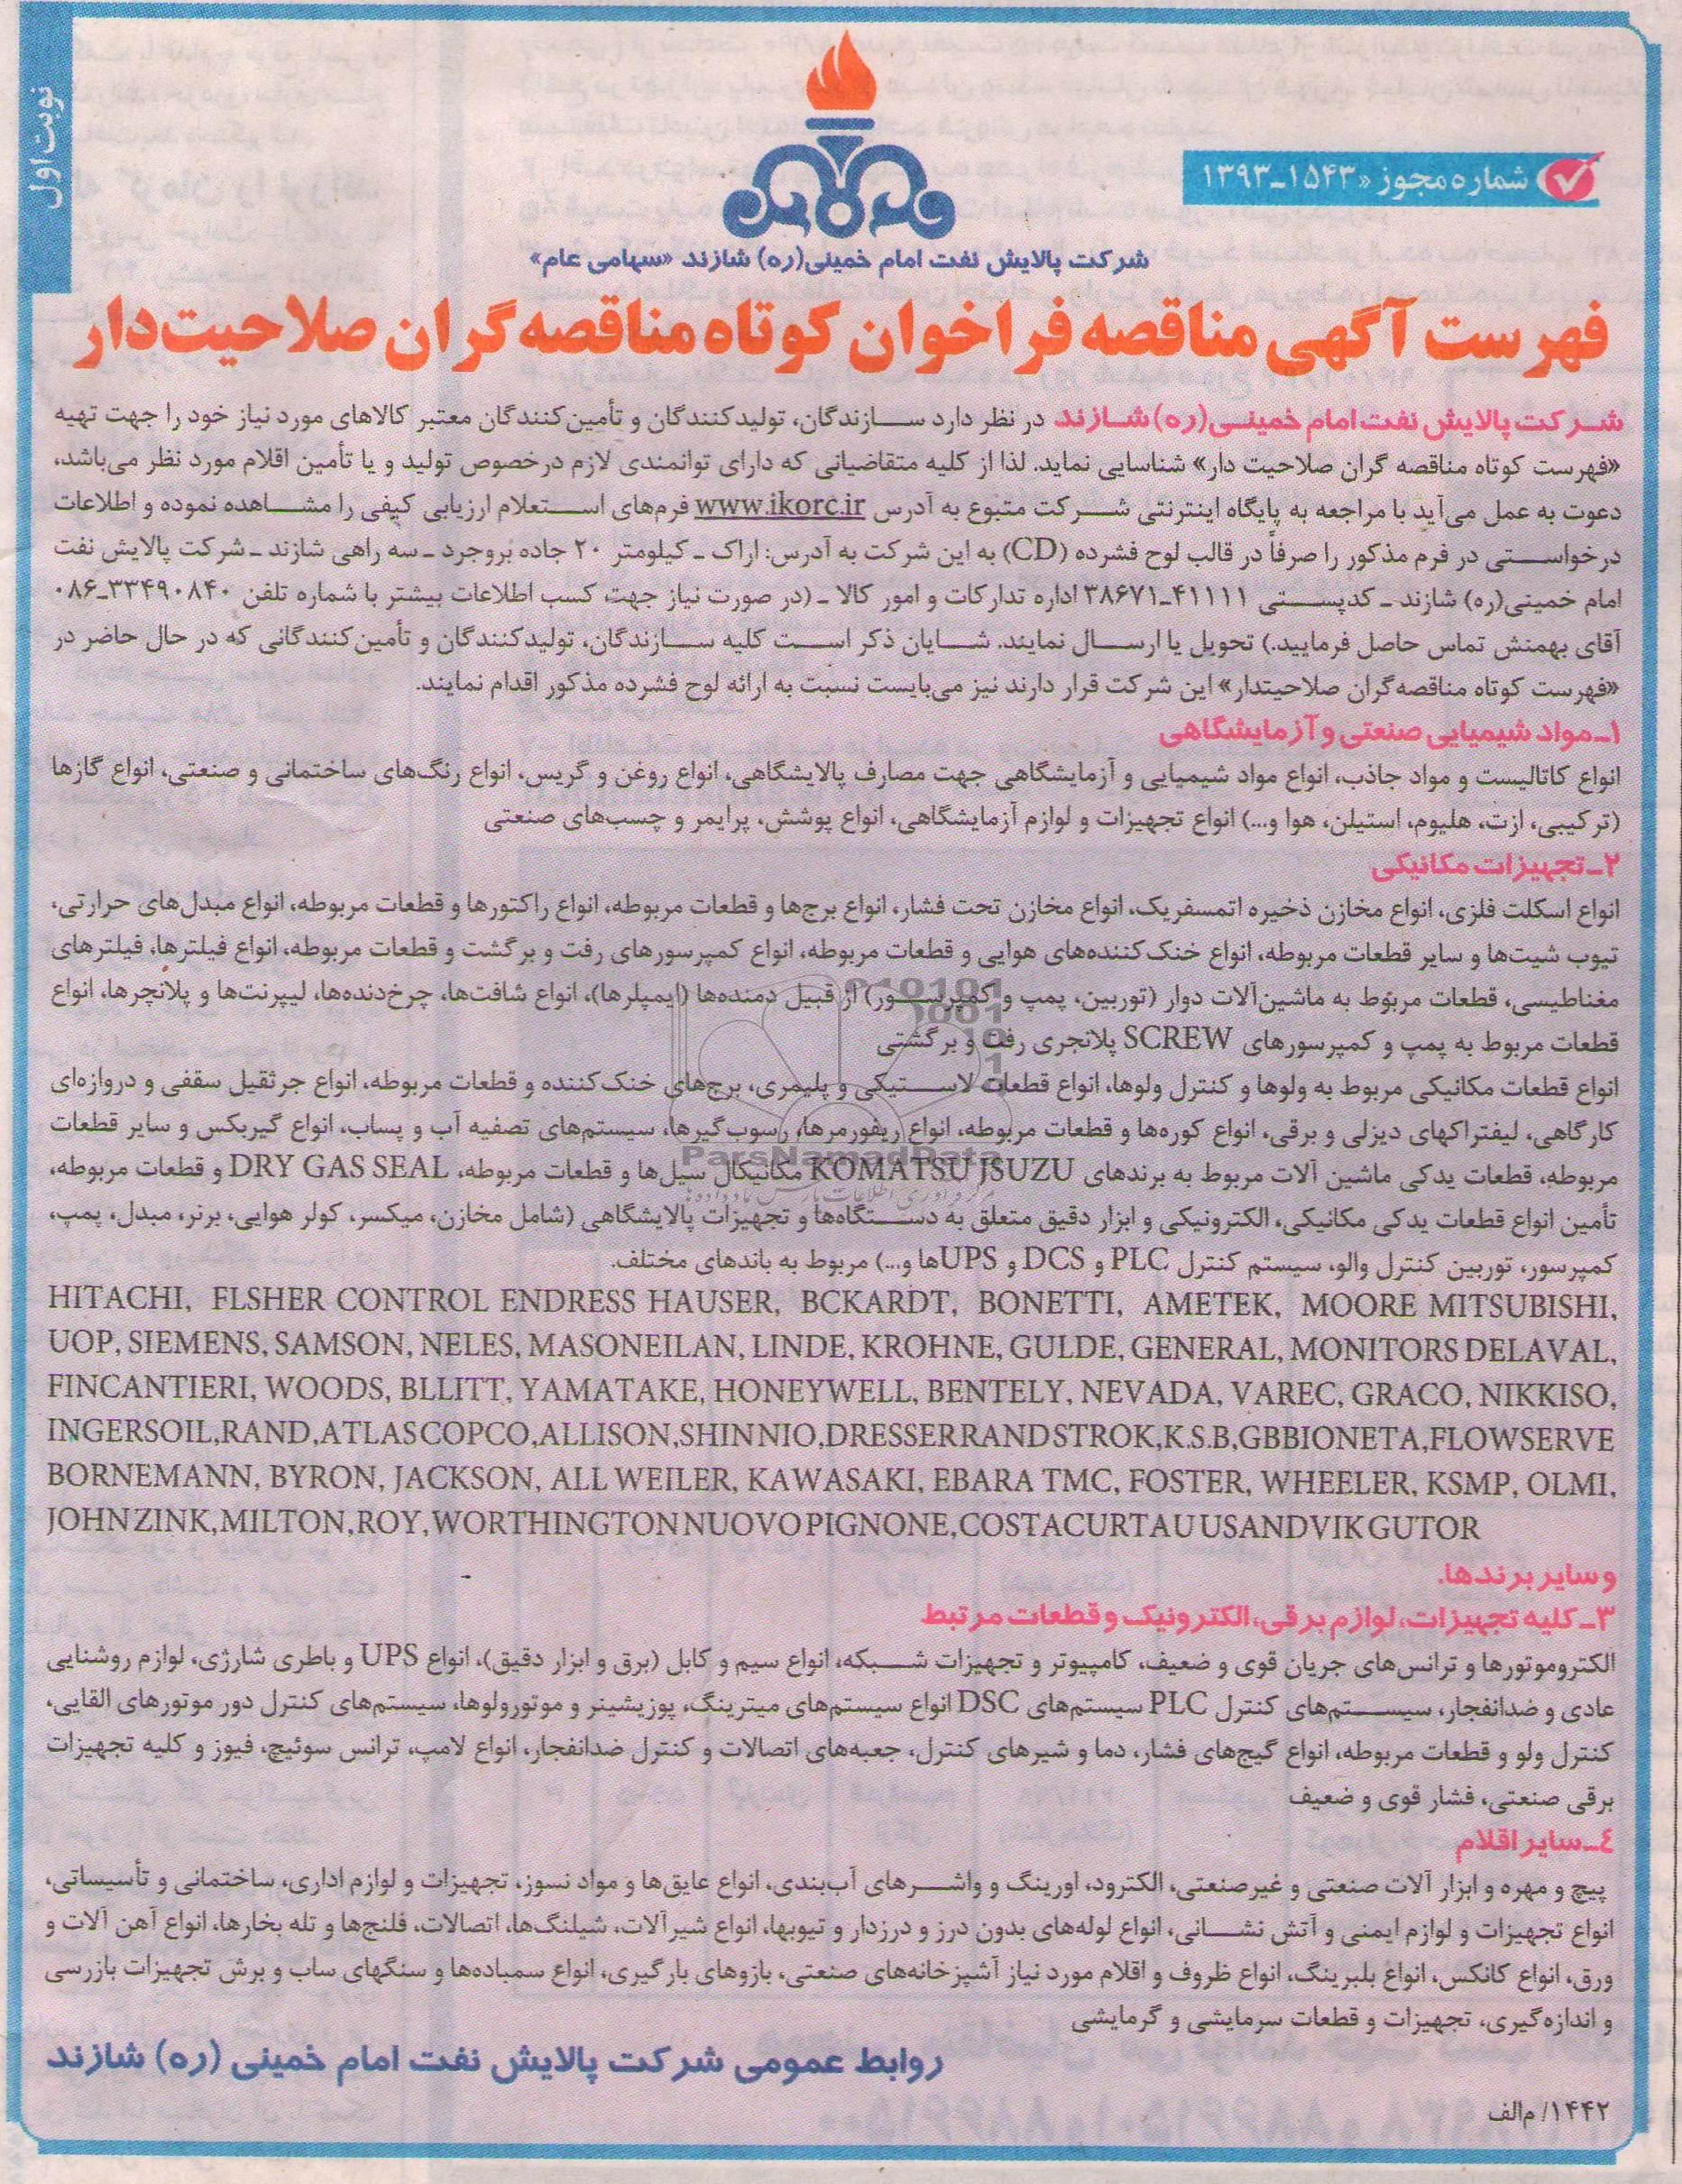 نوبت اول
شماره مجوز «۱۳۹۳-۱۵۴۳
شرکت پالایش نفت امام خمینی(ره) شازند «سهامی عام»
فهرست آگهی مناقصه فراخوان کوتاه مناقصه‌گران صلاحیت‌دار
شرکت پالایش نفت امام خمینی(ره) شازند در نظر دارد سازندگان، تولیدکنندگان و تأمین‌کنندگان معتبر کالاهای مورد نیاز خود را جهت تهیه
«فهرست کوتاه مناقصه گران صلاحیت دار» شناسایی نماید. لذا از کلیه متقاضیانی که دارای توانمندی لازم درخصوص تولید و یا تأمین اقلام مورد نظر می‌باشد،
دعوت به عمل می‌آید با مراجعه به پایگاه اینترنتی شرکت متبوع به آدرس www.ikorc.ir فرم‌های استعلام ارزیابی کیفی را مشاهده نموده و اطلاعات
درخواستی در فرم مذکور را صرفاً در قالب لوح فشرده (CD) به این شرکت به آدرس: اراک ـ کیلومتر ۲۰ جاده بروجرد ـ سه راهی شازند ـ شرکت پالایش نفت
امام خمینی(ره) شازند ـ کدپستی ۴۱۱۱۱-۳۸۶۷۱ اداره تدارکات و امور کالا ـ (در صورت نیاز جهت کسب اطلاعات بیشتر با شماره تلفن ۳۳۴۹۰۸۴۰-۰۸۶
آقای بهمنش تماس حاصل فرمایید.) تحویل یا ارسال نمایند. شایان ذکر است کلیه سازندگان، تولیدکنندگان و تأمین‌کنندگانی که در حال حاضر در
«فهرست کوتاه مناقصه‌گران صلاحیتدار» این شرکت قرار دارند نیز می‌بایست نسبت به ارائه لوح فشرده مذکور اقدام نمایند.
۱ـ مواد شیمیایی صنعتی و آزمایشگاهی
انواع کاتالیست و مواد جاذب، انواع مواد شیمیایی و آزمایشگاهی جهت مصارف پالایشگاهی، انواع روغن و گریس، انواع رنگ‌های ساختمانی و صنعتی، انواع گازها
(ترکیبی، ازت، هلیوم، استیلن، هوا و...) انواع تجهیزات و لوازم آزمایشگاهی، انواع پوشش، پرایمر و چسب‌های صنعتی
۲ـ تجهیزات مکانیکی
انواع اسکلت فلزی، انواع مخازن ذخیره اتمسفریک، انواع مخازن تحت فشار، انواع برج‌ها و قطعات مربوطه، انواع راکتورها و قطعات مربوطه، انواع مبدل‌های حرارتی،
تیوب شیت‌ها و سایر قطعات مربوطه، انواع خنک‌کننده‌های هوایی و قطعات مربوطه، انواع کمپرسورهای رفت و برگشت و قطعات مربوطه، انواع فیلترها، فیلترهای
مغناطیسی، قطعات مربوط به ماشین‌آلات دوار (توربین، پمپ و کمپرسور) از قبیل دمنده‌ها (ایمپلرها)، انواع شافت‌ها، چرخ‌دنده‌ها، لیپرنت‌ها و پلانچرها، انواع
قطعات مربوط به پمپ و کمپرسورهای SCREW پلانجری رفت و برگشتی
انواع قطعات مکانیکی مربوط به ولوها و کنترل ولوها، انواع قطعات لاستیکی و پلیمری، برج‌های خنک‌کننده و قطعات مربوطه، انواع جرثقیل سقفی و دروازه‌ای
کارگاهی، لیفتراکهای دیزلی و برقی، انواع کوره‌ها و قطعات مربوطه، انواع ریفورمرها، رسوب‌گیرها، سیستم‌های تصفیه آب و پساب، انواع گیربکس و سایر قطعات
مربوطه، قطعات یدکی ماشین آلات مربوط به برندهای KOMATSU JSUZU مکانیکال سیل‌ها و قطعات مربوطه، DRY GAS SEAL و قطعات مربوطه،
تأمین انواع قطعات یدکی مکانیکی، الکترونیکی و ابزار دقیق متعلق به دستگاه‌ها و تجهیزات پالایشگاهی (شامل مخازن، میکسر، کولر هوایی، برنر، مبدل، پمپ،
کمپرسور، توربین کنترل والو، سیستم کنترل PLC و DCS و UPSها و...) مربوط به باندهای مختلف.
HITACHI, FLSHER CONTROL ENDRESS HAUSER, BCKARDT, BONETTI, AMETEK, MOORE MITSUBISHI,
UOP, SIEMENS, SAMSON, NELES, MASONEILAN, LINDE, KROHNE, GULDE, GENERAL, MONITORS DELAVAL,
FINCANTIERI, WOODS, BLLITT, YAMATAKE, HONEYWELL, BENTELY, NEVADA, VAREC, GRACO, NIKKISO,
INGERSOIL,RAND,ATLAS COPCO,ALLISON,SHIN NIO,DRESSER RAND STROK,K.S.B,GBBIONETA,FLOWSERVE
BORNEMANN, BYRON, JACKSON, ALL WEILER, KAWASAKI, EBARA TMC, FOSTER, WHEELER, KSMP, OLMI,
JOHN ZINK, MILTON, ROY, WORTHINGTON NUOVO PIGNONE, COSTACURTAU USANDVIK GUTOR
و سایر برندها.
۳ـ کلیه تجهیزات، لوازم برقی، الکترونیک و قطعات مرتبط
الکتروموتورها و ترانس‌های جریان قوی و ضعیف، کامپیوتر و تجهیزات شبکه، انواع سیم و کابل (برق و ابزار دقیق)، انواع UPS و باطری شارژی، لوازم روشنایی
عادی و ضدانفجار، سیستم‌های کنترل PLC سیستم‌های DSC انواع سیستم‌های میترینگ، پوزیشینر و موتورولوها، سیستم‌های کنترل دور موتورهای القایی،
کنترل ولو و قطعات مربوطه، انواع گیج‌های فشار، دما و شیرهای کنترل، جعبه‌های اتصالات و کنترل ضدانفجار، انواع لامپ، ترانس سوئیچ، فیوز و کلیه تجهیزات
برقی صنعتی، فشار قوی و ضعیف
۴ـ سایر اقلام
پیچ و مهره و ابزار آلات صنعتی و غیرصنعتی، الکترود، اورینگ و واشرهای آب‌بندی، انواع عایق‌ها و مواد نسوز، تجهیزات و لوازم اداری، ساختمانی و تأسیساتی،
انواع تجهیزات و لوازم ایمنی و آتش نشانی، انواع لوله‌های بدون درز و درزدار و تیوبها، انواع شیرآلات، شیلنگ‌ها، اتصالات، فلنج‌ها و تله بخارها، انواع آهن آلات و
ورق، انواع کانکس، انواع بلبرینگ، انواع ظروف و اقلام مورد نیاز آشپزخانه‌های صنعتی، بازوهای بارگیری، انواع سمباده‌ها و سنگهای ساب و برش تجهیزات بازرسی
و اندازه‌گیری، تجهیزات و قطعات سرمایشی و گرمایشی
روابط عمومی شرکت پالایش نفت امام خمینی (ره) شازند
۱۴۴۲/ م‌الف
ParsNamadData